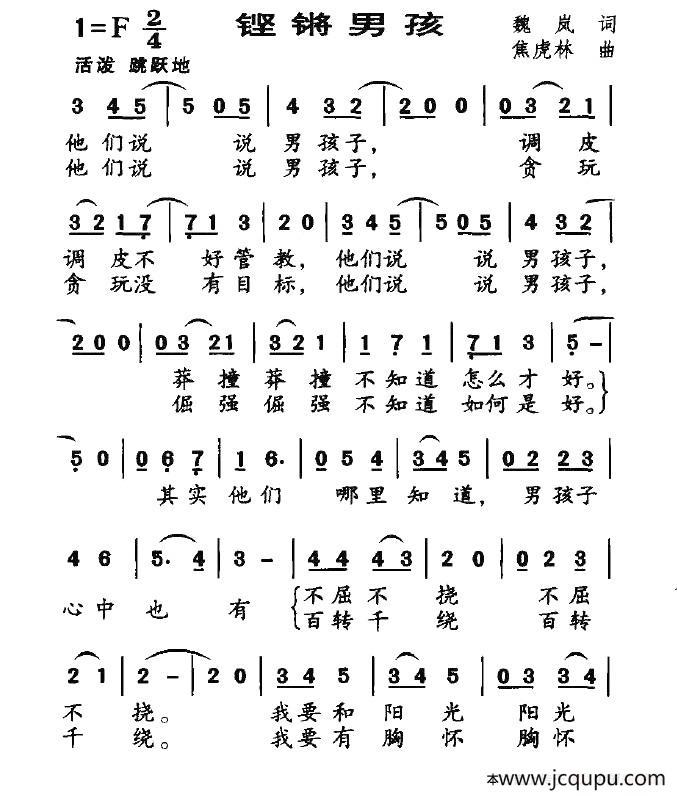 1=F 2/4 铿锵男孩 魏岚 词
焦虎林 曲
活泼 跳跃地
3 45 | 505 | 4 32 | 200 | 03 21 |
他们说 说男孩子, 调皮
他们说 说男孩子, 贪玩
32 17 | 71 3 | 20 | 345 | 505 | 4 32 |
调皮不好管教, 他们说 说男孩子,
贪玩没有目标, 他们说 说男孩子,
200 | 03 21 | 321 | 1 71 | 71 3 | 5 - |
莽撞莽撞不知道怎么才好。
倔强倔强不知道如何是好。
50 | 06 7 | 16. | 05 4 | 345 | 02 23 |
其实他们 哪里知道, 男孩子
4 6 | 5. 4 | 3 - | 44 43 | 20 | 02 3 |
心中也有 不屈不挠 不屈
百转千绕 百转
2 1 | 2 - | 20 | 34 5 | 34 5 | 03 34 |
不挠。 我要和阳光 阳光
千绕。 我要有胸怀 胸怀
本www.jcqupu.com